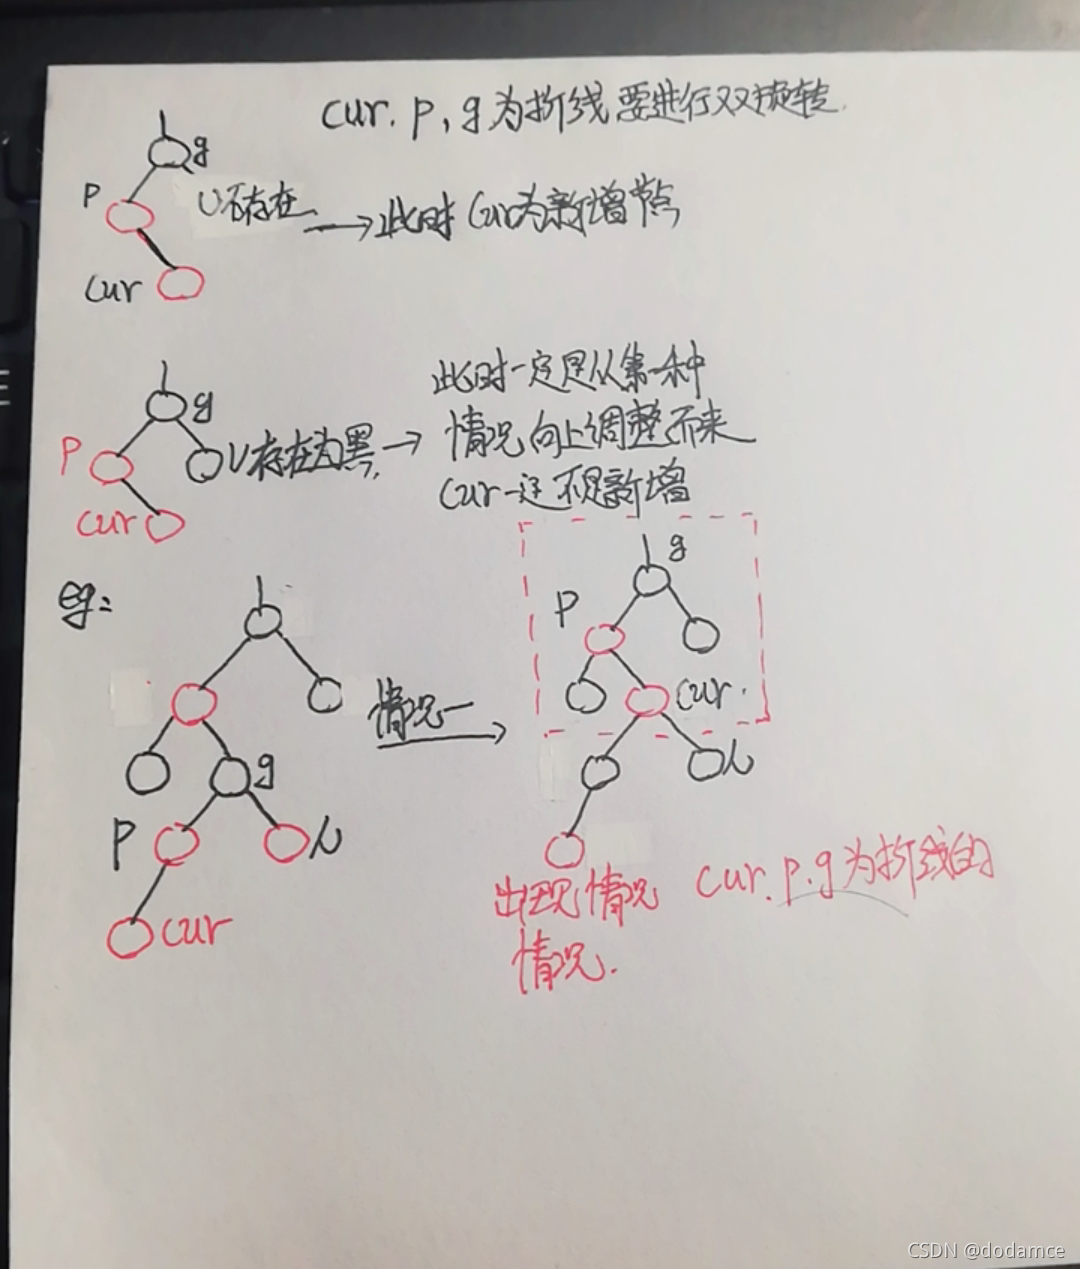 cur. p, g为折线要进行双旋转
g
p
U不存在
→此时cur为新增节点
cur
此时一定是从第一种
g
情况向上调整而来
p
U存在为黑,→
cur一定不是新增
cur
g
eg:
p
cur.
情况一
g
u
p
u
出现情况 cur.p.g为折线的
cur
情况.
CSDN @dodamce